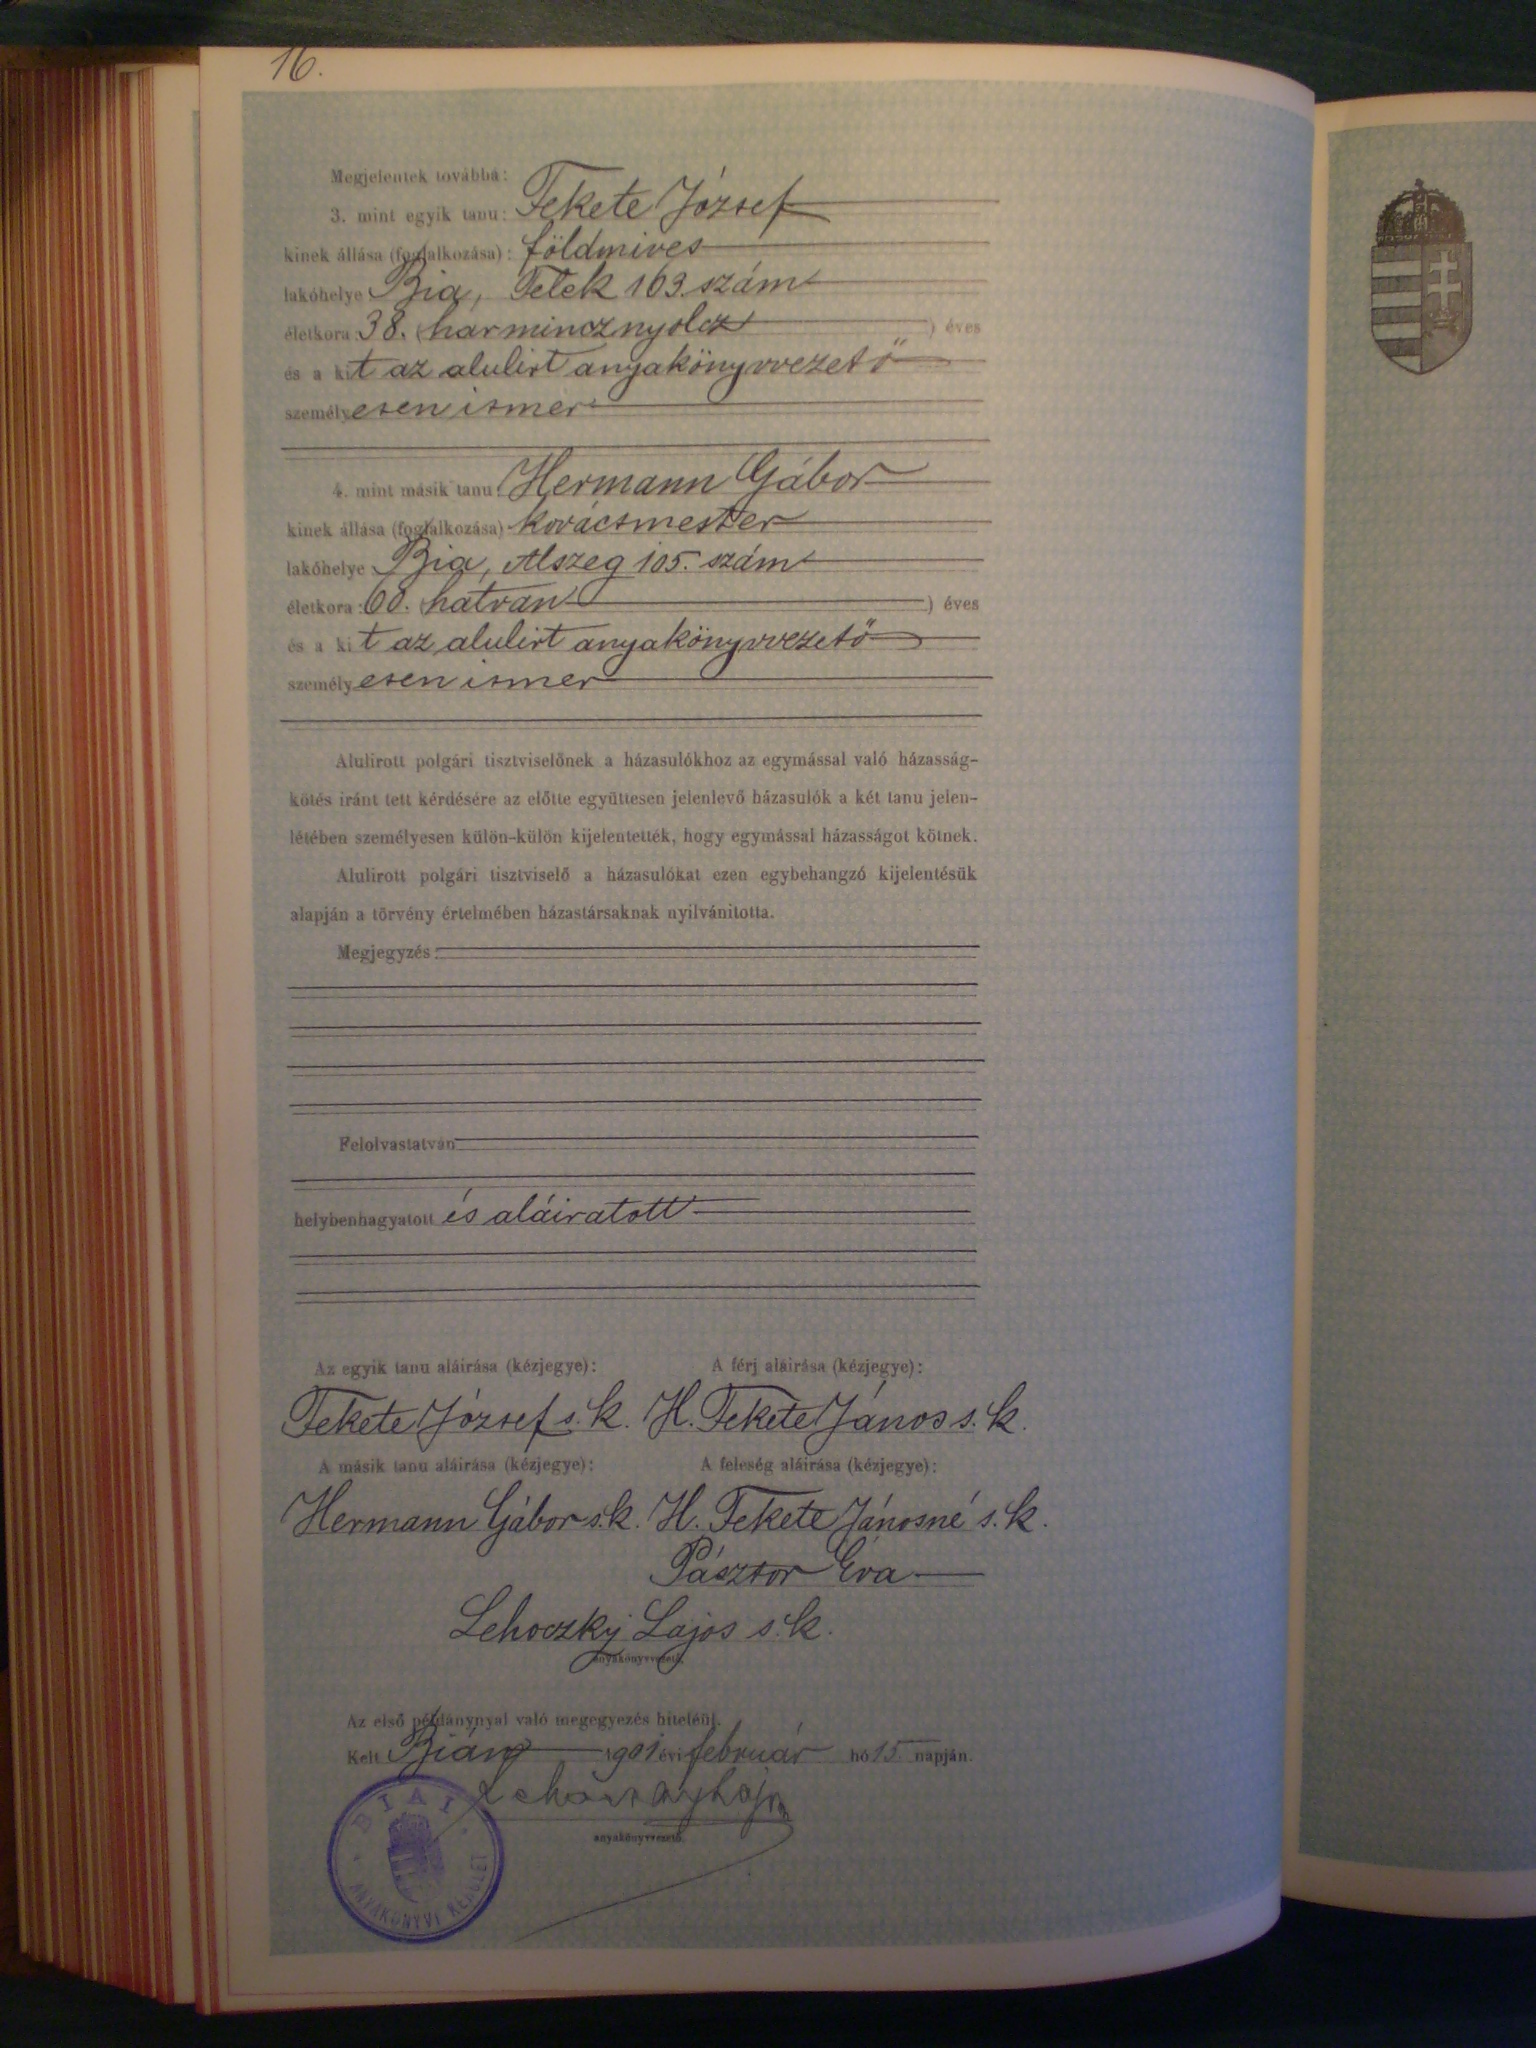 16.
Megjelentek továbbá:
3. mint egyik tanu: Fekete József
kinek állása (foglalkozása): földmives
lakóhelye Bia, Telek 163. szám
életkora: 38. (harmincznyolcz) éves
és a kit az alulirt anyakönyvvezető
személyesen ismer
4. mint másik tanu: Hermann Gábor
kinek állása (foglalkozása) kovácsmester
lakóhelye Bia, Alszeg 105. szám
életkora: 60. (hatvan) éves
és a kit az alulirt anyakönyvvezető
személyesen ismer
Alulirott polgári tisztviselőnek a házasulókhoz az egymással való házasság-
kötés iránt tett kérdésére az előtte együttesen jelenlevő házasulók a két tanu jelen-
létében személyesen külön-külön kijelentették, hogy egymással házasságot kötnek.
Alulirott polgári tisztviselő a házasulókat ezen egybehangzó kijelentésük
alapján a törvény értelmében házastársaknak nyilvánitotta.
Megjegyzés:
Felolvastatván
helybenhagyatott és aláiratott
Az egyik tanu aláirása (kézjegye): A férj aláirása (kézjegye):
Fekete József s. k. H. Fekete János s. k.
A másik tanu aláirása (kézjegye): A feleség aláirása (kézjegye):
Hermann Gábor s. k. H. Fekete Jánosné s. k.
Pásztor Éva
Lehoczky Lajos s. k.
anyakönyvvezető.
Az első példánynyal való megegyezés hiteléül.
Kelt Bián 1901 évi február hó 15 napján.
Lehoczky Lajos
anyakönyvvezető.
BIAI
ANYAKÖNYVI KERÜLET